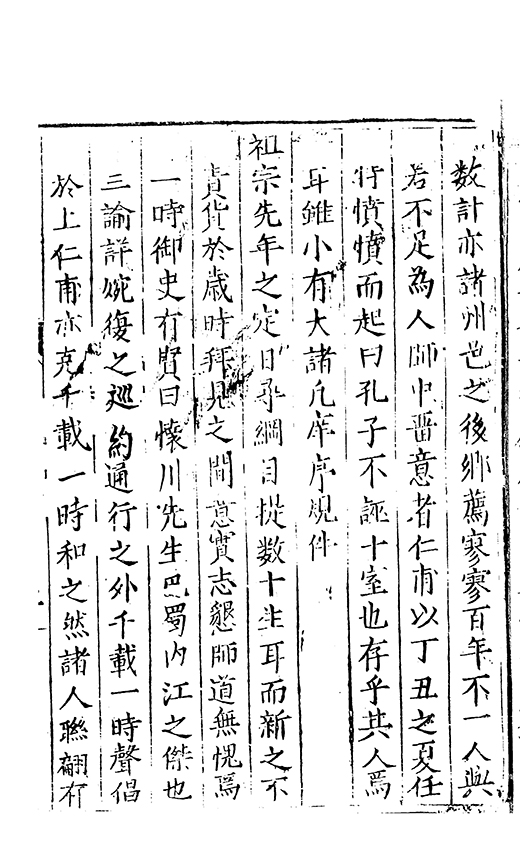 数計亦諸州邑之後鄉薦寥寥百年不一人與
若不足為人師中嗇意者仁甫以丁丑之夏任
特憤憤而起曰孔子不誣十室也存乎其人焉
耳雖小有大諸凡庠序規件
祖宗先年之定日承綱目提数十生耳而新之不
責貨於歲時拜見之間意實志懇師道無愧焉
一時御史有賢曰懷川先生巴蜀内江之傑也
三諭詳婉復之廵約通行之外千載一時聲倡
於上仁甫亦克千載一時和之然諸人聯翩有